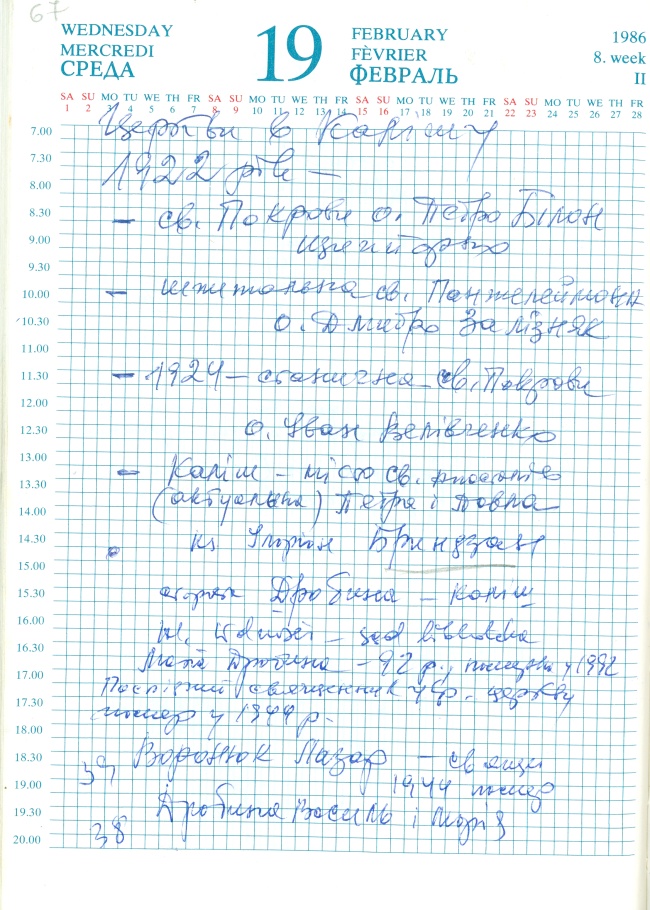 67
WEDNESDAY
MERCREDI
СРЕДА
19
FEBRUARY
FÈVRIER
ФЕВРАЛЬ
1986
8. week
II
SA SU MO TU WE TH FR SA SU MO TU WE TH FR SA SU MO TU WE TH FR SA SU MO TU WE TH FR
1 2 3 4 5 6 7 8 9 10 11 12 13 14 15 16 17 18 19 20 21 22 23 24 25 26 27 28
7.00 Церкви в Калішу
7.30
8.00 1922 рік —
8.30 — св. Покрови о. Петро Білон
9.00
9.30
10.00 — св. Пантелеймона
10.30 о. Дмитро Залізняк
11.00
11.30 — 1924 — станична св. Покрови
12.00
12.30 о. Іван
13.00 — Каліш – місто св.
13.30 (актуальна) Петра і Павла
14.00
14.30 кс Бриндзан
15.00
15.30 Дробина – Каліш
16.00
16.30 Дробина – 92 р., 1992
17.00 Послідний священник укр. церкви
17.30 помер у 1944 р.
18.00
18.30 39 Воронюк Лазар —
19.00 1944 помер
19.30 Дробина Василь і Марія
20.00 38